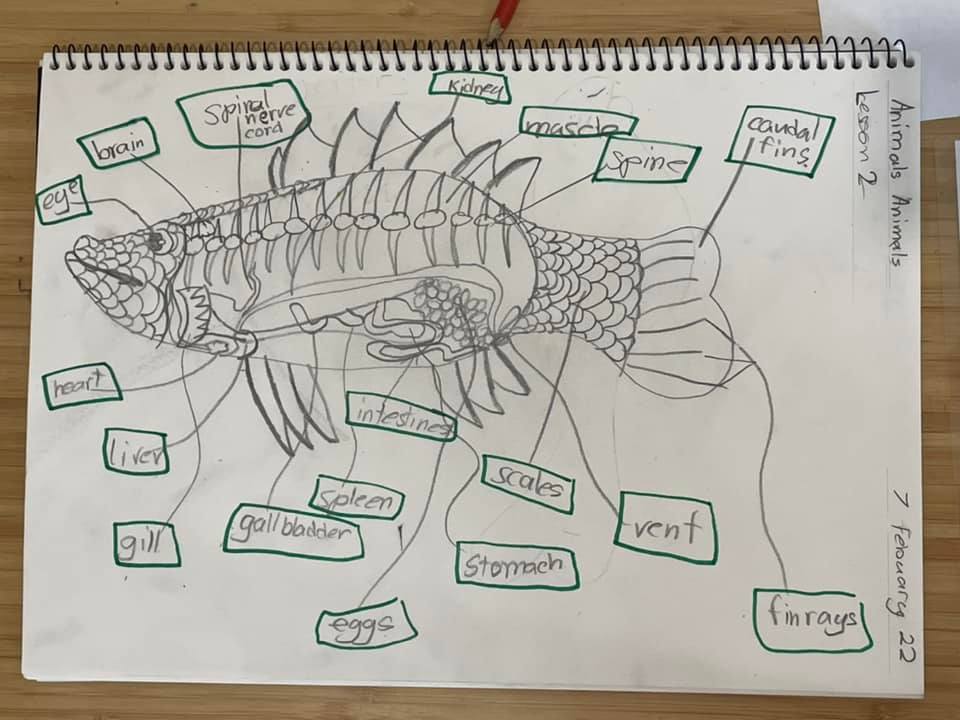 Animals Animals
Lesson 2
7 Febuary 22
kidney
spiral
nerve
cord
muscle
caudal
fins.
brain
spine
eye
heart
intestines
liver
scales
spleen
gallbladder
vent
gill
stomach
eggs
finrays